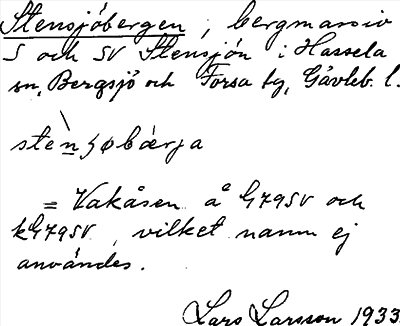 Stensjöbergen, bergmassiv
S och SV Stensjön i Hassela
sn, Bergsjö och Forsa tg, Gävleb. l.
= Vakåsen å G79SV och
kG79SV, vilket namn ej
användes.
Lars Larsson 1933